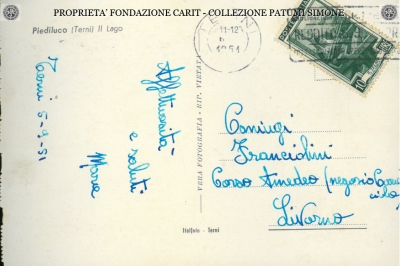 PROPRIETA' FONDAZIONE CARIT - COLLEZIONE PATUMI SIMONE
Piediluco (Terni) Il Lago
TERNI
11-12
1951
Terni 5-9-51
Affettuosità
e saluti
Maria
VERA FOTOGRAFIA - RIP. VIETATA
Coniugi
Franciolini
Corso Amedeo (negozio
Livorno
Italfoto - Terni